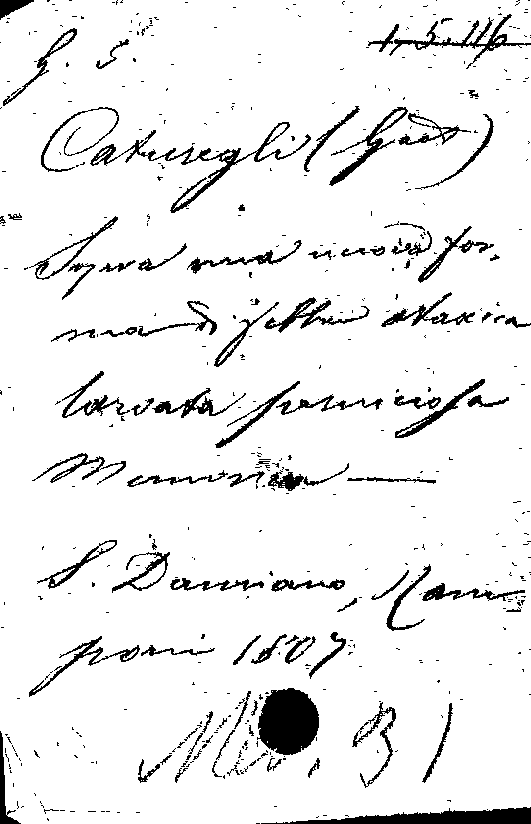 G. 5.
1.5.116
Caturegli (Gaet.)
Sopra una nuova for-
ma di febbre ataxica
larvata perniciosa
Memoria —
S. Damiano, Ram
poni 1807
Mis. B 1